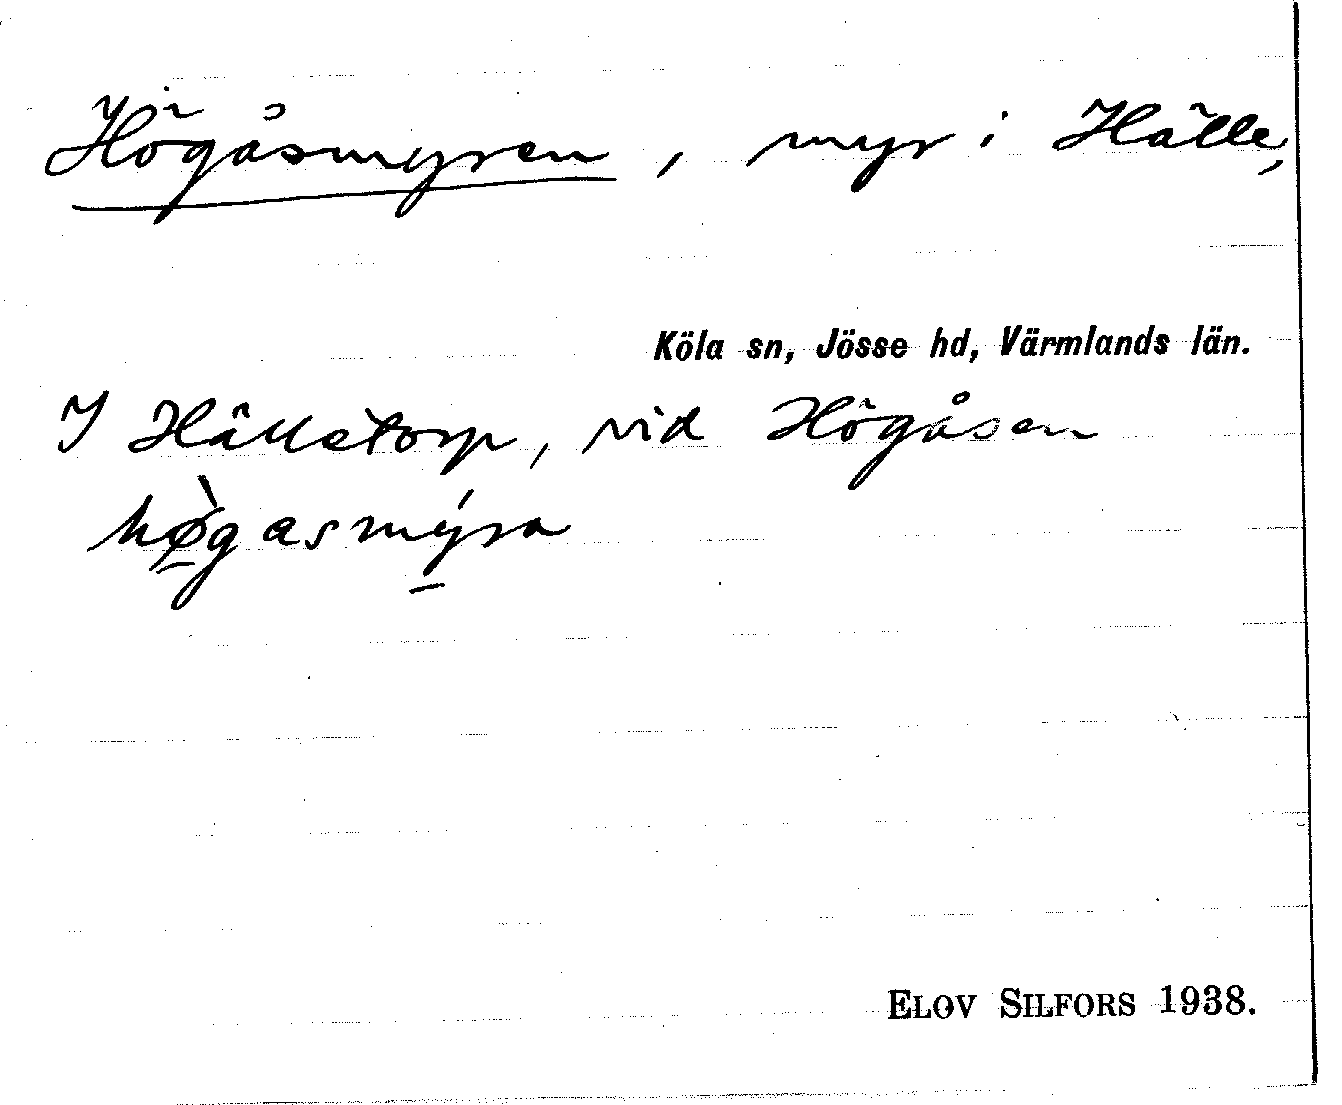 Högåsmyren, myr i Hälle,
Köla sn, Jösse hd, Värmlands län.
I Hälletorp, vid Högåsen
hø̀gasmýra
ELOV SILFORS 1938.